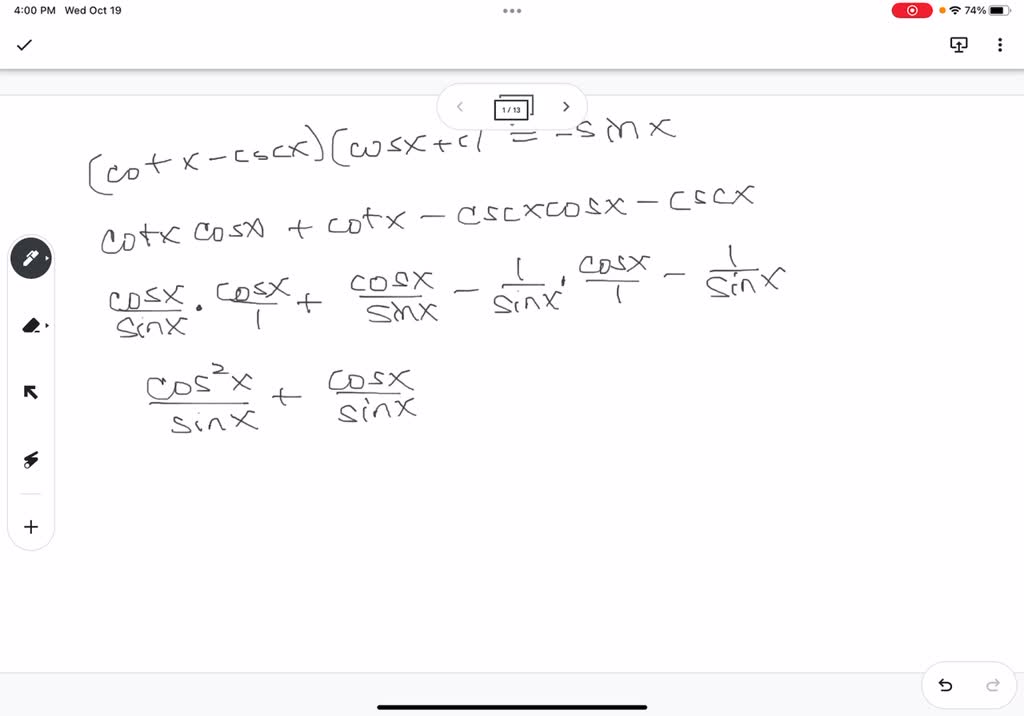 4:00 PM Wed Oct 19
74%
1 / 13
(cot x - csc x)(cos x + 1 = - sin x
cot x cos x + cot x - csc x cos x - csc x
cos x / sin x · cos x / 1 + cos x / sin x - 1 / sin x · cos x / 1 - 1 / sin x
cos² x / sin x + cos x / sin x